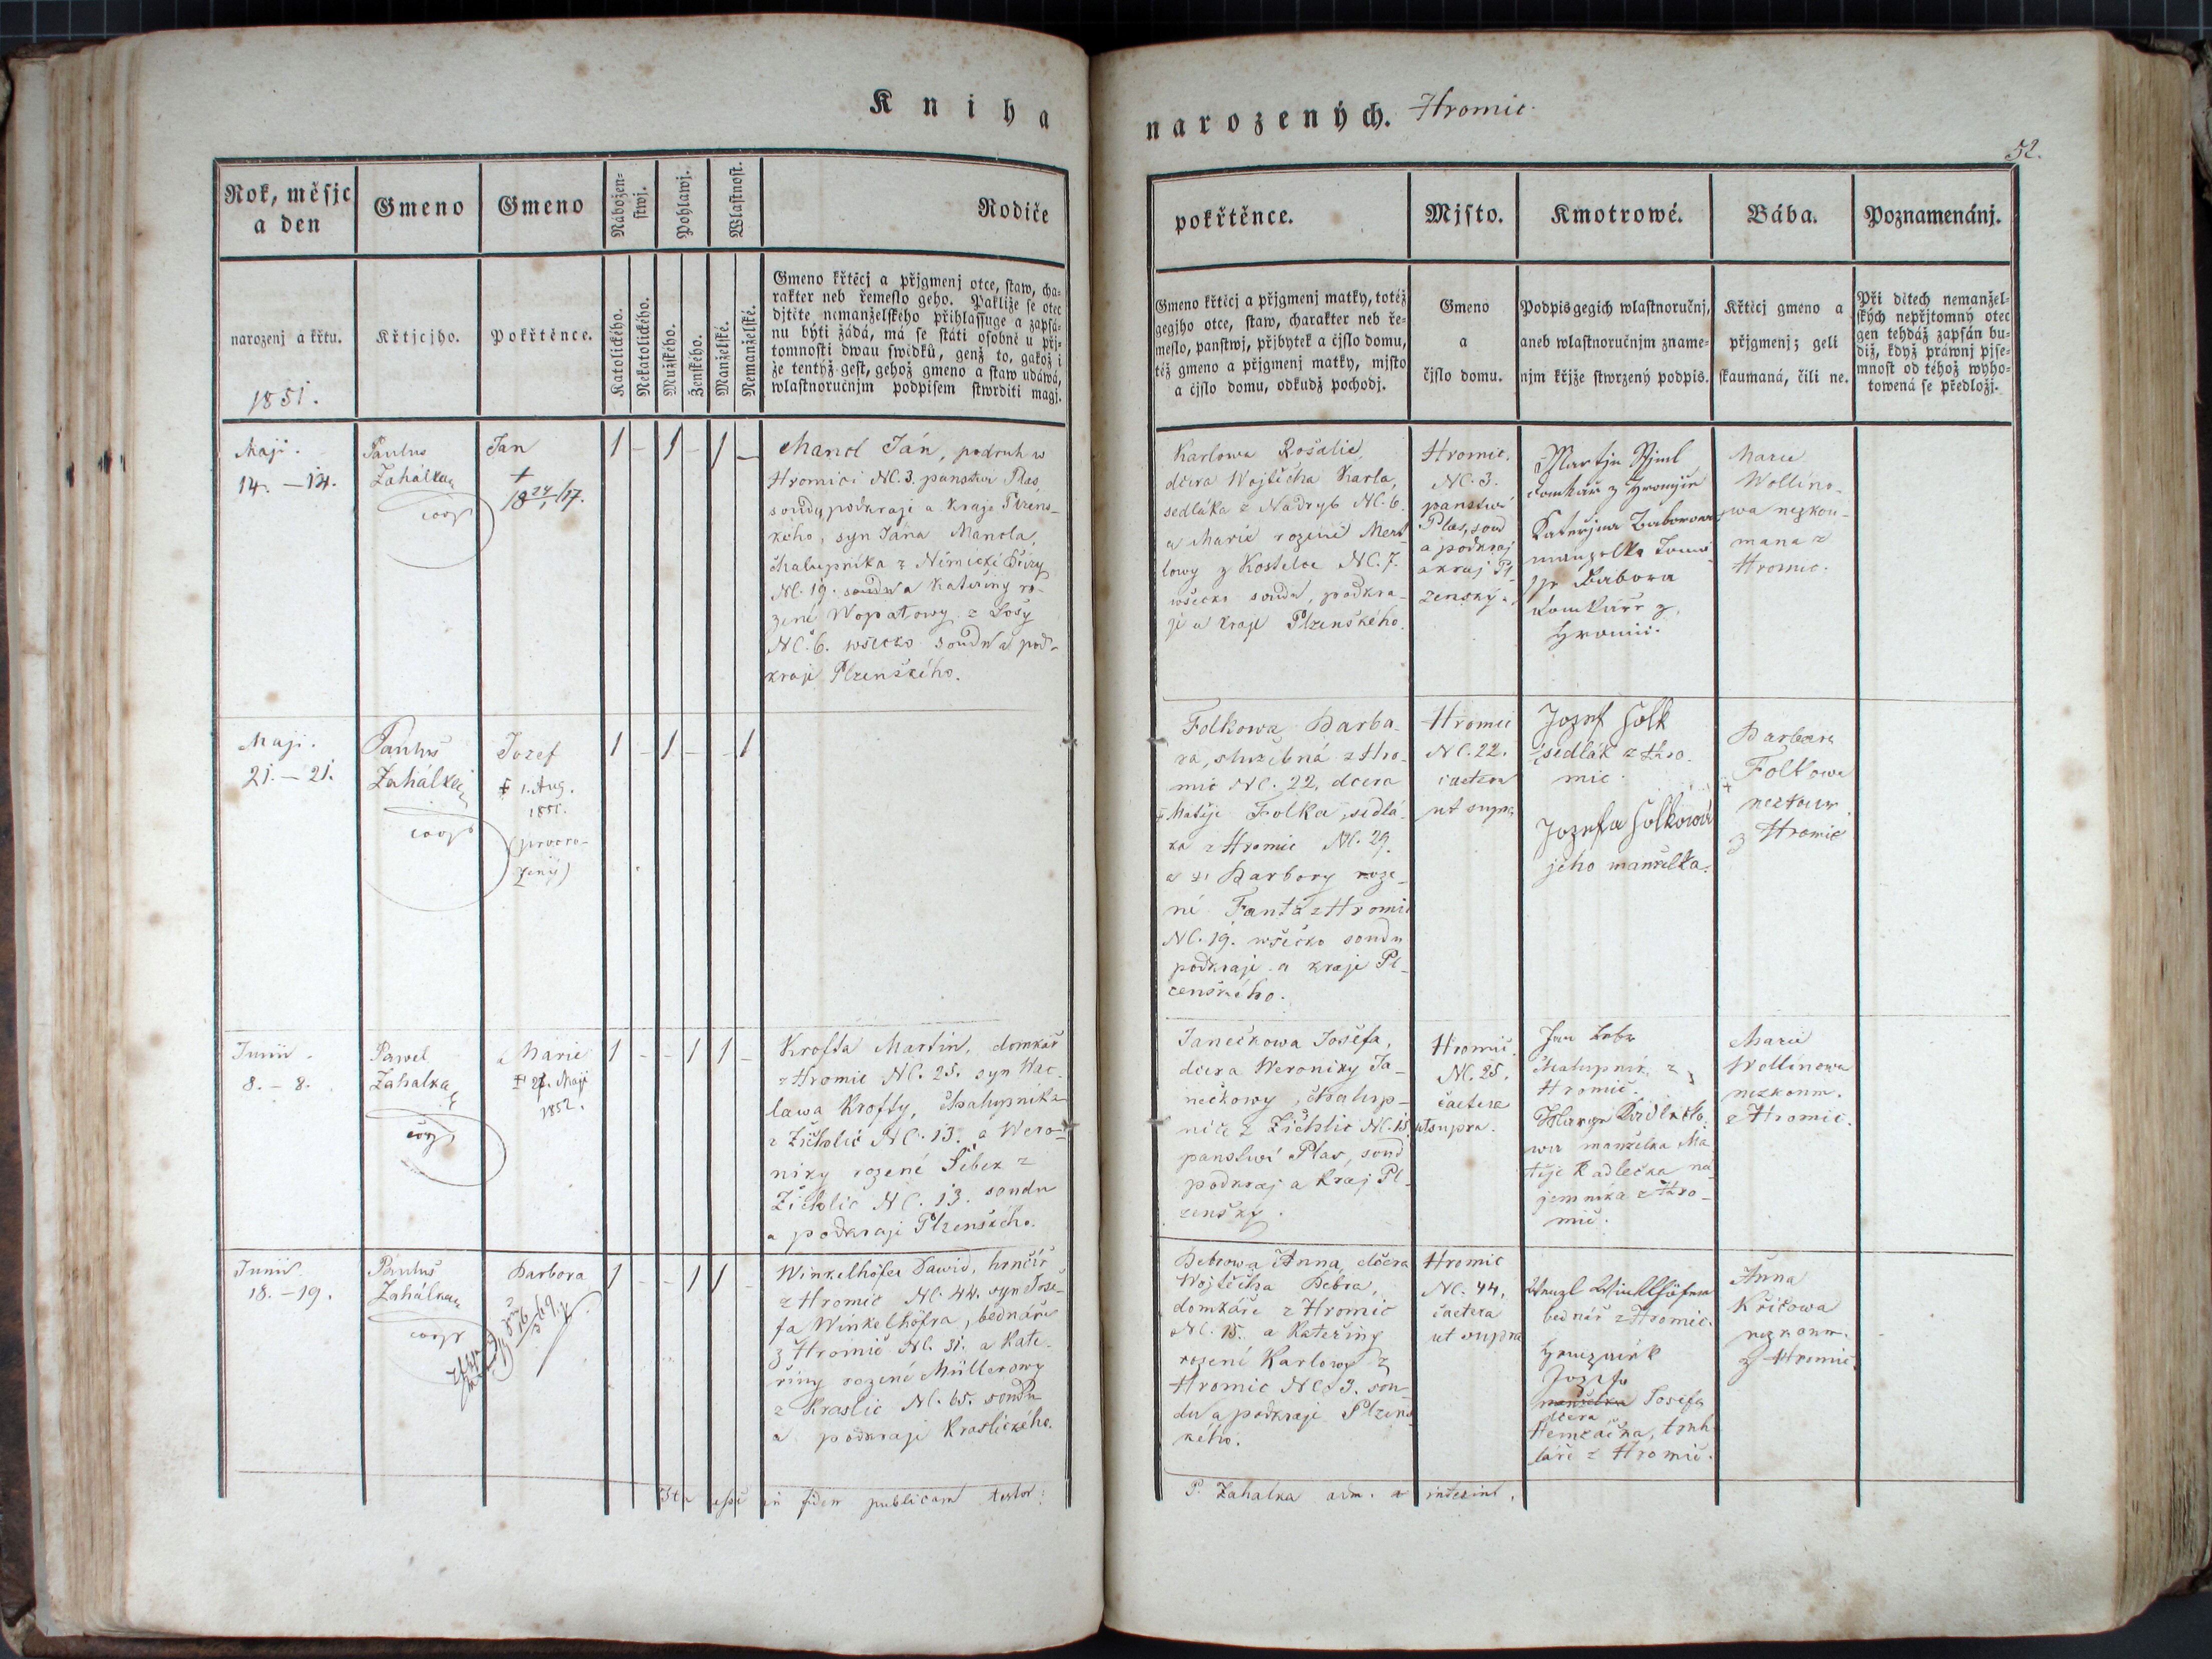 Kniha
narozených. Hromic
52.
Rok, měsjc
a den
narozenj a křtu.
1851.
Gmeno
Křtjcjho.
Gmeno
Pokřtěnce.
Nábožen-
stwj.
Katolického.
Nekatolického.
Pohlawj.
Mužského.
Ženského.
Wlastnost.
Manželské.
Nemanželské.
Rodiče
Gmeno křtěcj a přjgmenj otce, staw, cha-
rakter neb řemeslo geho. Pakliže se otec
djtěte nemanželského přihlassuge a zapsá-
nu býti žádá, má se státi osobně u přj-
tomnosti dwau swědků, genž to, gakož i
že tentýž gest, gehož gmeno a staw udáwá,
wlastnoručnjm podpisem stwrditi magj.
pokřtěnce.
Gmeno křtěcj a přjgmenj matky, totéž
gegjho otce, staw, charakter neb ře-
meslo, panstwj, přjbytek a čjslo domu,
též gmeno a přjgmenj matky, mjsto
a čjslo domu, odkudž pochodj.
Mjsto.
Gmeno
a
čjslo domu.
Kmotrowé.
Podpis gegich wlastnoručnj,
aneb wlastnoručnjm zname-
njm křjže stwrzený podpis.
Bába.
Křtěcj gmeno a
přjgmenj; geli
skaumaná, čili ne.
Poznamenánj.
Při dětech nemanžel-
ských nepřjtomný otec
gen tehdáž zapsán bu-
diž, když práwnj pjse-
mnost od téhož wyho-
towená se předložj.
Maji.
14. – 14.
Paulus
Zahálka
coop
Jan
+
1 – 1 – 1 –
Manol Ján, podruh w
Hromici NC. 3. panstwi Plas,
soudu, podkraje a kraje Plzens-
kého, syn Jána Manola,
chalupníka z Německé Břízy
NC. 19. soudu a Kateřiny ro-
zené Wopatowy z
NC. 6. wšecko soudu a pod-
kraje Plzenského.
Karlowa Rosalie,
dcera Wojtěcha Karla,
sedláka z Nadryb NC. 6.
a Marie rozené Mert-
lowy z Kostelce NC. 7.
wšecko soudu, podkra-
je a kraje Plzenského.
Hromic
NC. 3.
panstwí
Plas, soud
a podkraj
a kraj Pl-
zenský.
Martin
domkář z Hromic
Kateřina Baborowa
manzelka
Babora
domkáře z
Hromic.
Marie
Wollino-
wa nezkou-
mana z
Hromic.
Maji.
21. – 21.
Paulus
Zahálka
coop
Jozef
† 1. Aug.
1851.
(prworo-
zený)
1 – 1 – – 1
Folkowa Barbo-
ra, služebná z Hro-
mic NC. 22, dcera
Matěje Folka, sedlá-
ka z Hromic NC. 29.
a z Barbory roze-
né Fanta z Hromic
NC. 19. wšecko soudu
podkraje a kraje Pl-
zenského.
Hromic
NC. 22.
caetera
ut supra
Jozef Folk
sedlák z Hro-
mic.
Jozefa Folkowá
jeho manželka.
Barbara
Folkowa
nezkoum.
z Hromic
Junii.
8. – 8.
Pawel
Zahalka
coop
Marie
† 27. Maji
1852.
1 – – 1 1 –
Krofta Martin, domkář
z Hromic NC. 25. syn Wac-
lawa Krofty, chalupníka
z Žichlic NC. 13. a Wero-
niky rozené Šebek z
Žichlic NC. 13. soudu
a podkraje Plzenského.
Janečkowa Josefa,
dcera Weroniky Ja-
nečkowy, chalup-
nice z Žichlic NC. 15.
panstwí Plas, soud
podkraj a kraj Pl-
zenský.
Hromic.
NC. 25.
caetera
ut supra.
Jan
chalupník z
Hromic.
Kadlečko-
wa manželka Ma-
těje Kadlečka ná-
jemníka z Hro-
mic.
Marie
Wollinowa
nezkoum.
z Hromic.
Junii.
18. – 19.
Paulus
Zahálka
coop
Barbora
1 – – 1 1 –
Winkelhöfer Dawid, hrnčíř
z Hromic NC. 44. syn Jose-
fa Winkelhöfra, bednáře
z Hromic NC. 31. a Kate-
řiny rozené Müllerowy
z Kraslic NC. 65. soudu
a podkraje Kraslického.
Bebrowa Anna, dcera
Wojtěcha Bebra,
domkáře z Hromic
NC. 15. a Kateřiny
rozené Karlowy z
Hromic NC. 3. sou-
du a podkraje Plzens-
kého.
Hromic
NC. 44,
caetera
ut supra
Wenzl Winkelhöfer
bednář z Hromic.
Josefa
manželka Josefa
dcera
truh-
láře z Hromic.
Anna
Křížowa
nezkoum.
z Hromic.
Ita esse in fidem publicam testor:
P. Zahalka adm. interim.